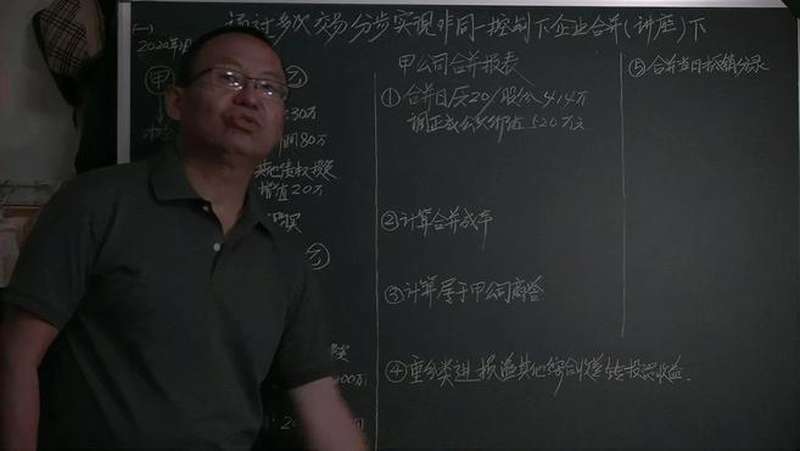 通过多次交易分步实现非同一控制下企业合并(讲座)下
(一)
2020年1月
甲
乙
30万
间80万
其他债权投资
增值20万
购买
乙
甲公司合并报表
①合并日原20%股份414万
调正成公允价值520万元
②计算合并成本
③计算属于甲公司商誉
④重分类进损益其他综合收益转投资收益.
⑤合并当日抵销分录